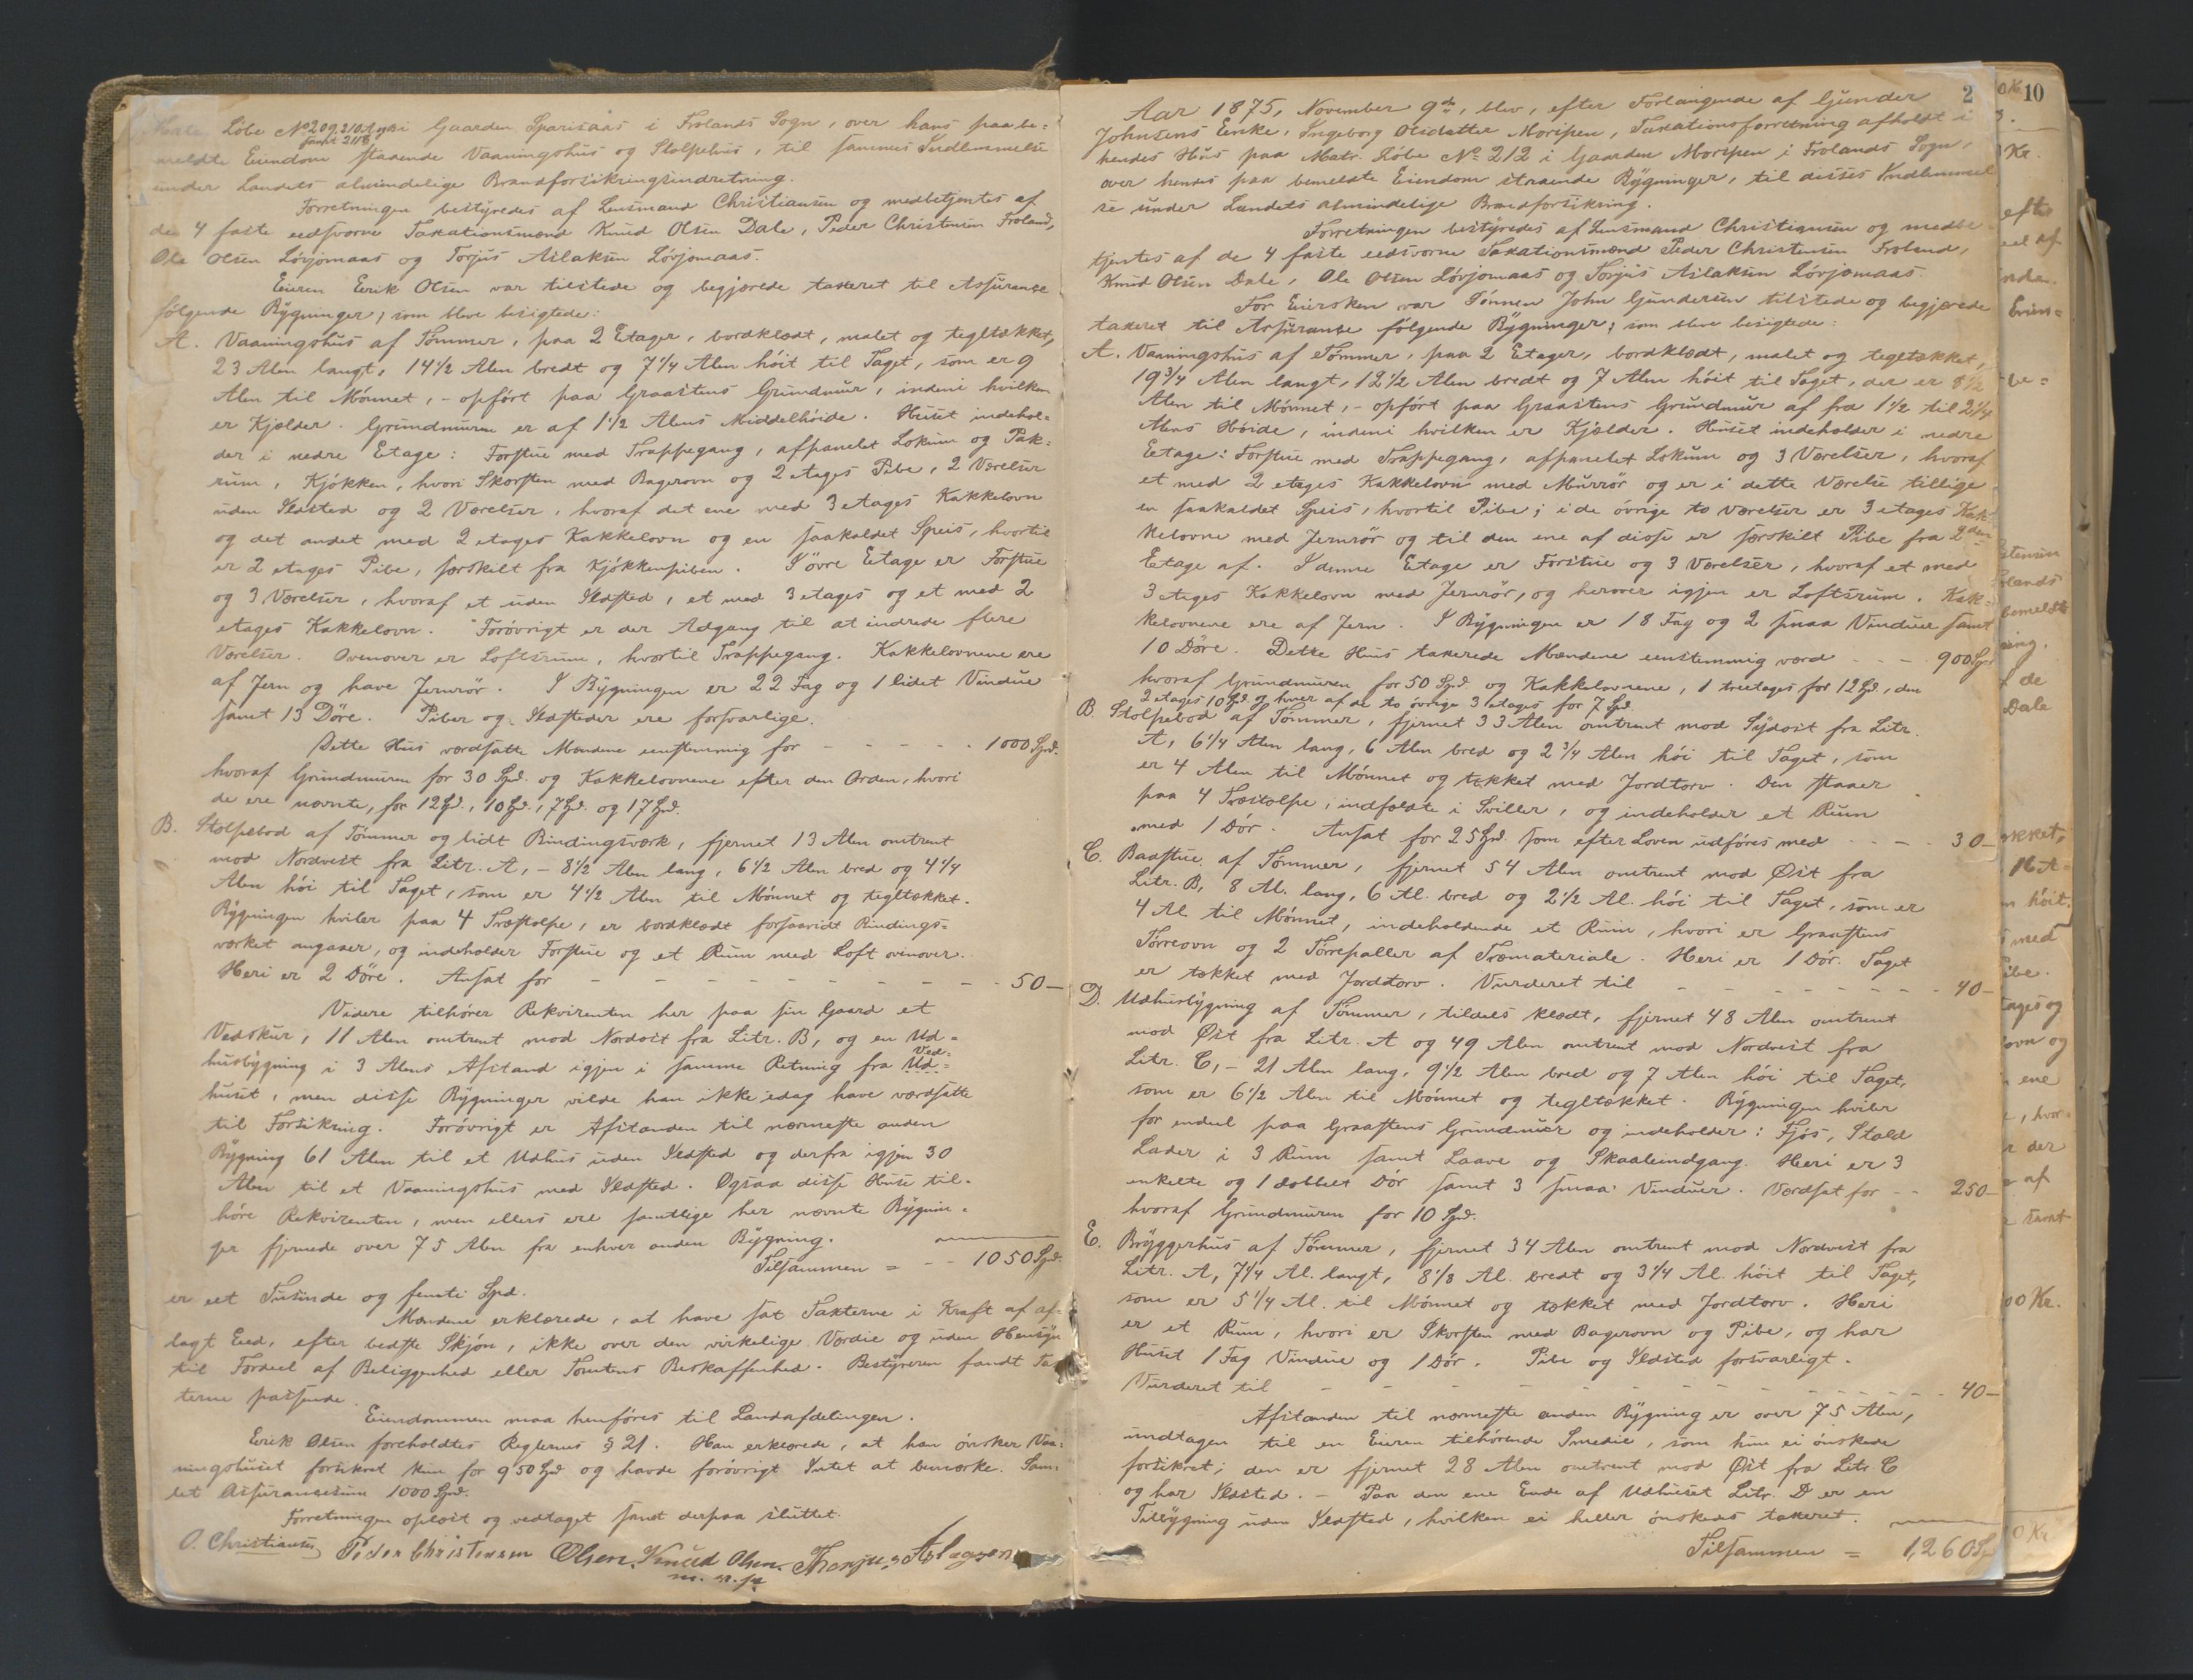 Løbe No 209, 210 i Gaarden Sparisaas i Frolands Sogn, over hans paa be-
samt 211b
meldte Eiendom staaende Vaaningshus og Stolpehus, til sammes Indlemmelse
under Landets almindelige Brandforsikringsindretning.
Forretningen bestyredes af Lensmand Christiansen og medbetjentes af
de 4 faste eedsvorne Taxationsmænd Knud Olsen Dale, Peder Christensen Froland,
Ole Olsen Løvjomaas og Torjus Aslaksen Løvjomaas.
Eieren Eerik Olsen var tilstede og begjærede taxeret til Assurance
følgende Bygninger, som bleve besigtede:
A. Vaaningshus af Tømmer, paa 2 Etager, bordklædt, malet og tegltækket,
23 Alen langt, 14 1/2 Alen bredt og 7 1/4 Alen høit til Taget, som er 9
Alen til Mønnet, - opført paa Graastens Grundmuur, indeni hvilken
er Kjælder. Grundmuren er af 1 1/2 Alens Middelhøide. Huset indehol-
der i nedre Etage: Forstue med Trappegang, afpanelet Lokum og Pak-
rum, Kjøkken, hvori Skorsten med Bagerovn og 2 etages Pibe, 2 Værelser
uden Ildsted og 2 Værelser, hvoraf det ene med 3 etages Kakkelovn
og det andet med 2 etages Kakkelovn og en saakaldet Speis, hvortil
er 2 etages Pibe, særskilt fra Kjøkkenpiben. I øvre Etage er Forstue
og 3 Værelser, hvoraf et uden Ildsted, et med 3 etages og et med 2
etages Kakkelovn. Forøvrigt er der Adgang til at indrede flere
Værelser. Ovenover er Loftsrum, hvortil Trappegang. Kakkelovnene ere
af Jern og have Jernrør. I Bygningen er 22 Fag og 1 lidet Vindue
samt 13 Døre. Piber og Ildsteder ere forsvarlige.
Dette Hus værdsatte Mændene eenstemmig for - - - - - 1000 Spd.
hvoraf Grundmuren for 30 Spd. og Kakkelovnene efter den Orden, hvori
de ere nævnte, for 12 Spd., 10 Spd., 7 Spd. og 17 Spd.
B. Stolpebod af Tømmer og lidt Bindingsværk, fjernet 13 Alen omtrent
mod Nordvest fra Litr. A, - 8 1/2 Alen lang, 6 1/2 Alen bred og 4 1/4
Alen høi til Taget, som er 4 1/2 Alen til Mønnet og tegltækket.
Bygningen hviler paa 4 Træstolpe, er bordklædt forsaavidt Bindings-
værket angaaer, og indeholder Forstue og et Rum med Loft ovenover.
Heri er 2 Døre. Ansat for - - - - - - - - - - 50 -
Videre tilhører Rekvirenten her paa sin Gaard et
Vedskur, 11 Alen omtrent mod Nordost fra Litr. B, og en Ud-
husbygning i 3 Alens Afstand igjen i samme Retning fra Ud-
Ved-
huset, men disse Bygninger vilde han ikke idag have værdsatte
til Forsikring. Forøvrigt er Afstanden til nærmeste anden
Bygning 61 Alen til et Udhus uden Ildsted og derfra igjen 30
Alen til et Vaaningshus med Ildsted. Ogsaa disse Huse til-
høre Rekvirenten, men ellers ere samtlige her nævnte Bygnin-
ger fjernede over 75 Alen fra enhver anden Bygning.
Tilsammen = - - 1050 Spd.
er eet Tusinde og femti Spd.
Mændene erklærede, at have sat Taxterne i Kraft af af-
lagt Eed, efter bedste Skjøn, ikke over den virkelige Værdie og uden Hensyn
til Fordeel af Beliggenhed eller Tomtens Beskaffenhed. Bestyreren fandt Tax
terne passende.
Eiendommen maa henføres til Landafdelingen.
Eerik Olsen foreholdtes Reglernes § 21. Han erklærede, at han ønsker Vaa-
ningshuset forsikret kun for 950 Spd og havde forøvrigt Intet at bemærke. Sam-
let Assurancesum 1000 Spd.
Forretningen oplæst og vedtaget samt derpaa sluttet.
O. Christiansen Peder Christensen Olsen. Knud Olsen. Thorjus Aslagsen
m. p. p.
2
Aar 1875, November 9de, blev, efter Forlangende af Gjunder
Johnsens Enke, Ingeborg Olsdatter Moripen, Taxationsforretning afholdt i
hendes Hus paa Matr. Løbe No 212 i Gaarden Moripen i Frolands Sogn,
over hendes paa bemeldte Eiendom staaende Bygninger, til disses Indlemmel
se under Landets almindelige Brandforsikring.
Forretningen bestyredes af Lensmand Christiansen og medbe-
tjentes af de 4 faste eedsvorne Taxationsmænd Peder Christensen Froland,
Knud Olsen Dale, Ole Olsen Løvjomaas og Torjus Aslaksen Løvjomaas.
For Eiersken var Sønnen John Gundersen tilstede og begjærede
taxeret til Assurance følgende Bygninger, som bleve besigtede:
A. Vaaningshus af Tømmer, paa 2 Etager, bordklædt, malet og tegltækket,
19 3/4 Alen langt, 12 1/2 Alen bredt og 7 Alen høit til Taget, der er 8 1/2
Alen til Mønnet, - opført paa Graastens Grundmuur af fra 1 1/2 til 2 1/4
Alens Høide, indeni hvilken er Kjælder. Huset indeholder i nedre
Eetage: Forstue med Trappegang, afpanelet Lokum og 3 Værelser, hvoraf
et med 2 etages Kakkelovn med Murrør og er i dette Værelse tillige
en saakaldet Speis, hvortil Pibe; i de øvrige to Værelser er 3 etages Kak-
kelovne med Jernrør og til den ene af disse er særskilt Pibe fra 2den
Etage af. I denne Etage er Forstue og 3 Værelser, hvoraf et med
3 etages Kakkelovn med Jernrør, og herover igjen er Loftsrum. Kak-
kelovnene ere af Jern. I Bygningen er 18 Fag og 2 smaa Vinduer samt
10 Døre. Dette Hus taxerede Mændene eenstemmig værd - - - 900 Spd
hvoraf Grundmuren for 50 Spd. og Kakkelovnene, 1 treetages for 12 Spd., den
2 etages 10 Spd. og hver af de to øvrige 3 etages for 7 Spd.
B. Stolpebod af Tømmer, fjernet 33 Alen omtrent mod Sydost fra Litr.
A, 6 1/4 Alen lang, 6 Alen bred og 2 3/4 Alen høi til Taget, som
er 4 Alen til Mønnet og tækket med Jordtorv. Den staaer
paa 4 Træstolpe, indfældte i Sviller, og indeholder et Rum
med 1 Dør. Ansat for 25 Spd. som efter Loven udføres med - - - 30 -
C. Badstue af Tømmer, fjernet 54 Alen omtrent mod Øst fra
Litr. B, 8 Al. lang, 6 Al. bred og 2 1/2 Al. høi til Taget, som er
4 Al. til Mønnet, indeholdende et Rum, hvori er Graastens
Tørreovn og 2 Tørrepaller af Træmateriale. Heri er 1 Dør. Taget
er tækket med Jordtorv. Vurderet til - - - - - - - 40 -
D. Udhusbygning af Tømmer, tildels klædt, fjernet 48 Alen omtrent
mod Øst fra Litr. A og 49 Alen omtrent mod Nordvest fra
Litr. C, - 21 Alen lang, 9 1/2 Alen bred og 7 Alen høi til Taget,
som er 6 1/2 Alen til Mønnet og tegltækket. Bygningen hviler
for endeel paa Graastens Grundmuur og indeholder: Fjøs, Stald
Lader i 3 Rum samt Laave og Skaaleindgang. Heri er 3
enkelte og 1 dobbelt Dør samt 3 smaa Vinduer. Værdsat for - - 250 -
hvoraf Grundmuren for 10 Spd.
E. Bryggerhus af Tømmer, fjernet 34 Alen omtrent mod Nordvest fra
Litr. A, 7 1/4 Al. langt, 8 1/8 Al. bredt og 3 1/4 Al. høit til Taget,
som er 5 1/4 Al. til Mønnet og tækket med Jordtorv. Heri
er et Rum, hvori er Skorsten med Bagerovn og Pibe, og har
Huset 1 Fag Vindue og 1 Dør. Pibe og Ildsted forsvarligt.
Vurderet til - - - - - - - - - - 40 -
Afstanden til nærmeste anden Bygning er over 75 Alen,
undtagen til en Eieren tilhørende Smedie, som hun ei ønskede
forsikret; den er fjernet 28 Alen omtrent mod Øst fra Litr. C
og har Ildsted. - Paa den ene Ende af Udhuset Litr. D er en
Tilbygning uden Ildsted, hvilken ei heller ønskedes taxeret.
Tilsammen = 1,260 Sp
10
Kr.
efter
eel af
Eien-
be-
stensen
olands
bemeldte
ning.
de
Dale
kket,
16 A-
høit
med
ibe.
tages og
ovn og
ene
, hvor-
der
af
samt
00 Kr.
0 Kr